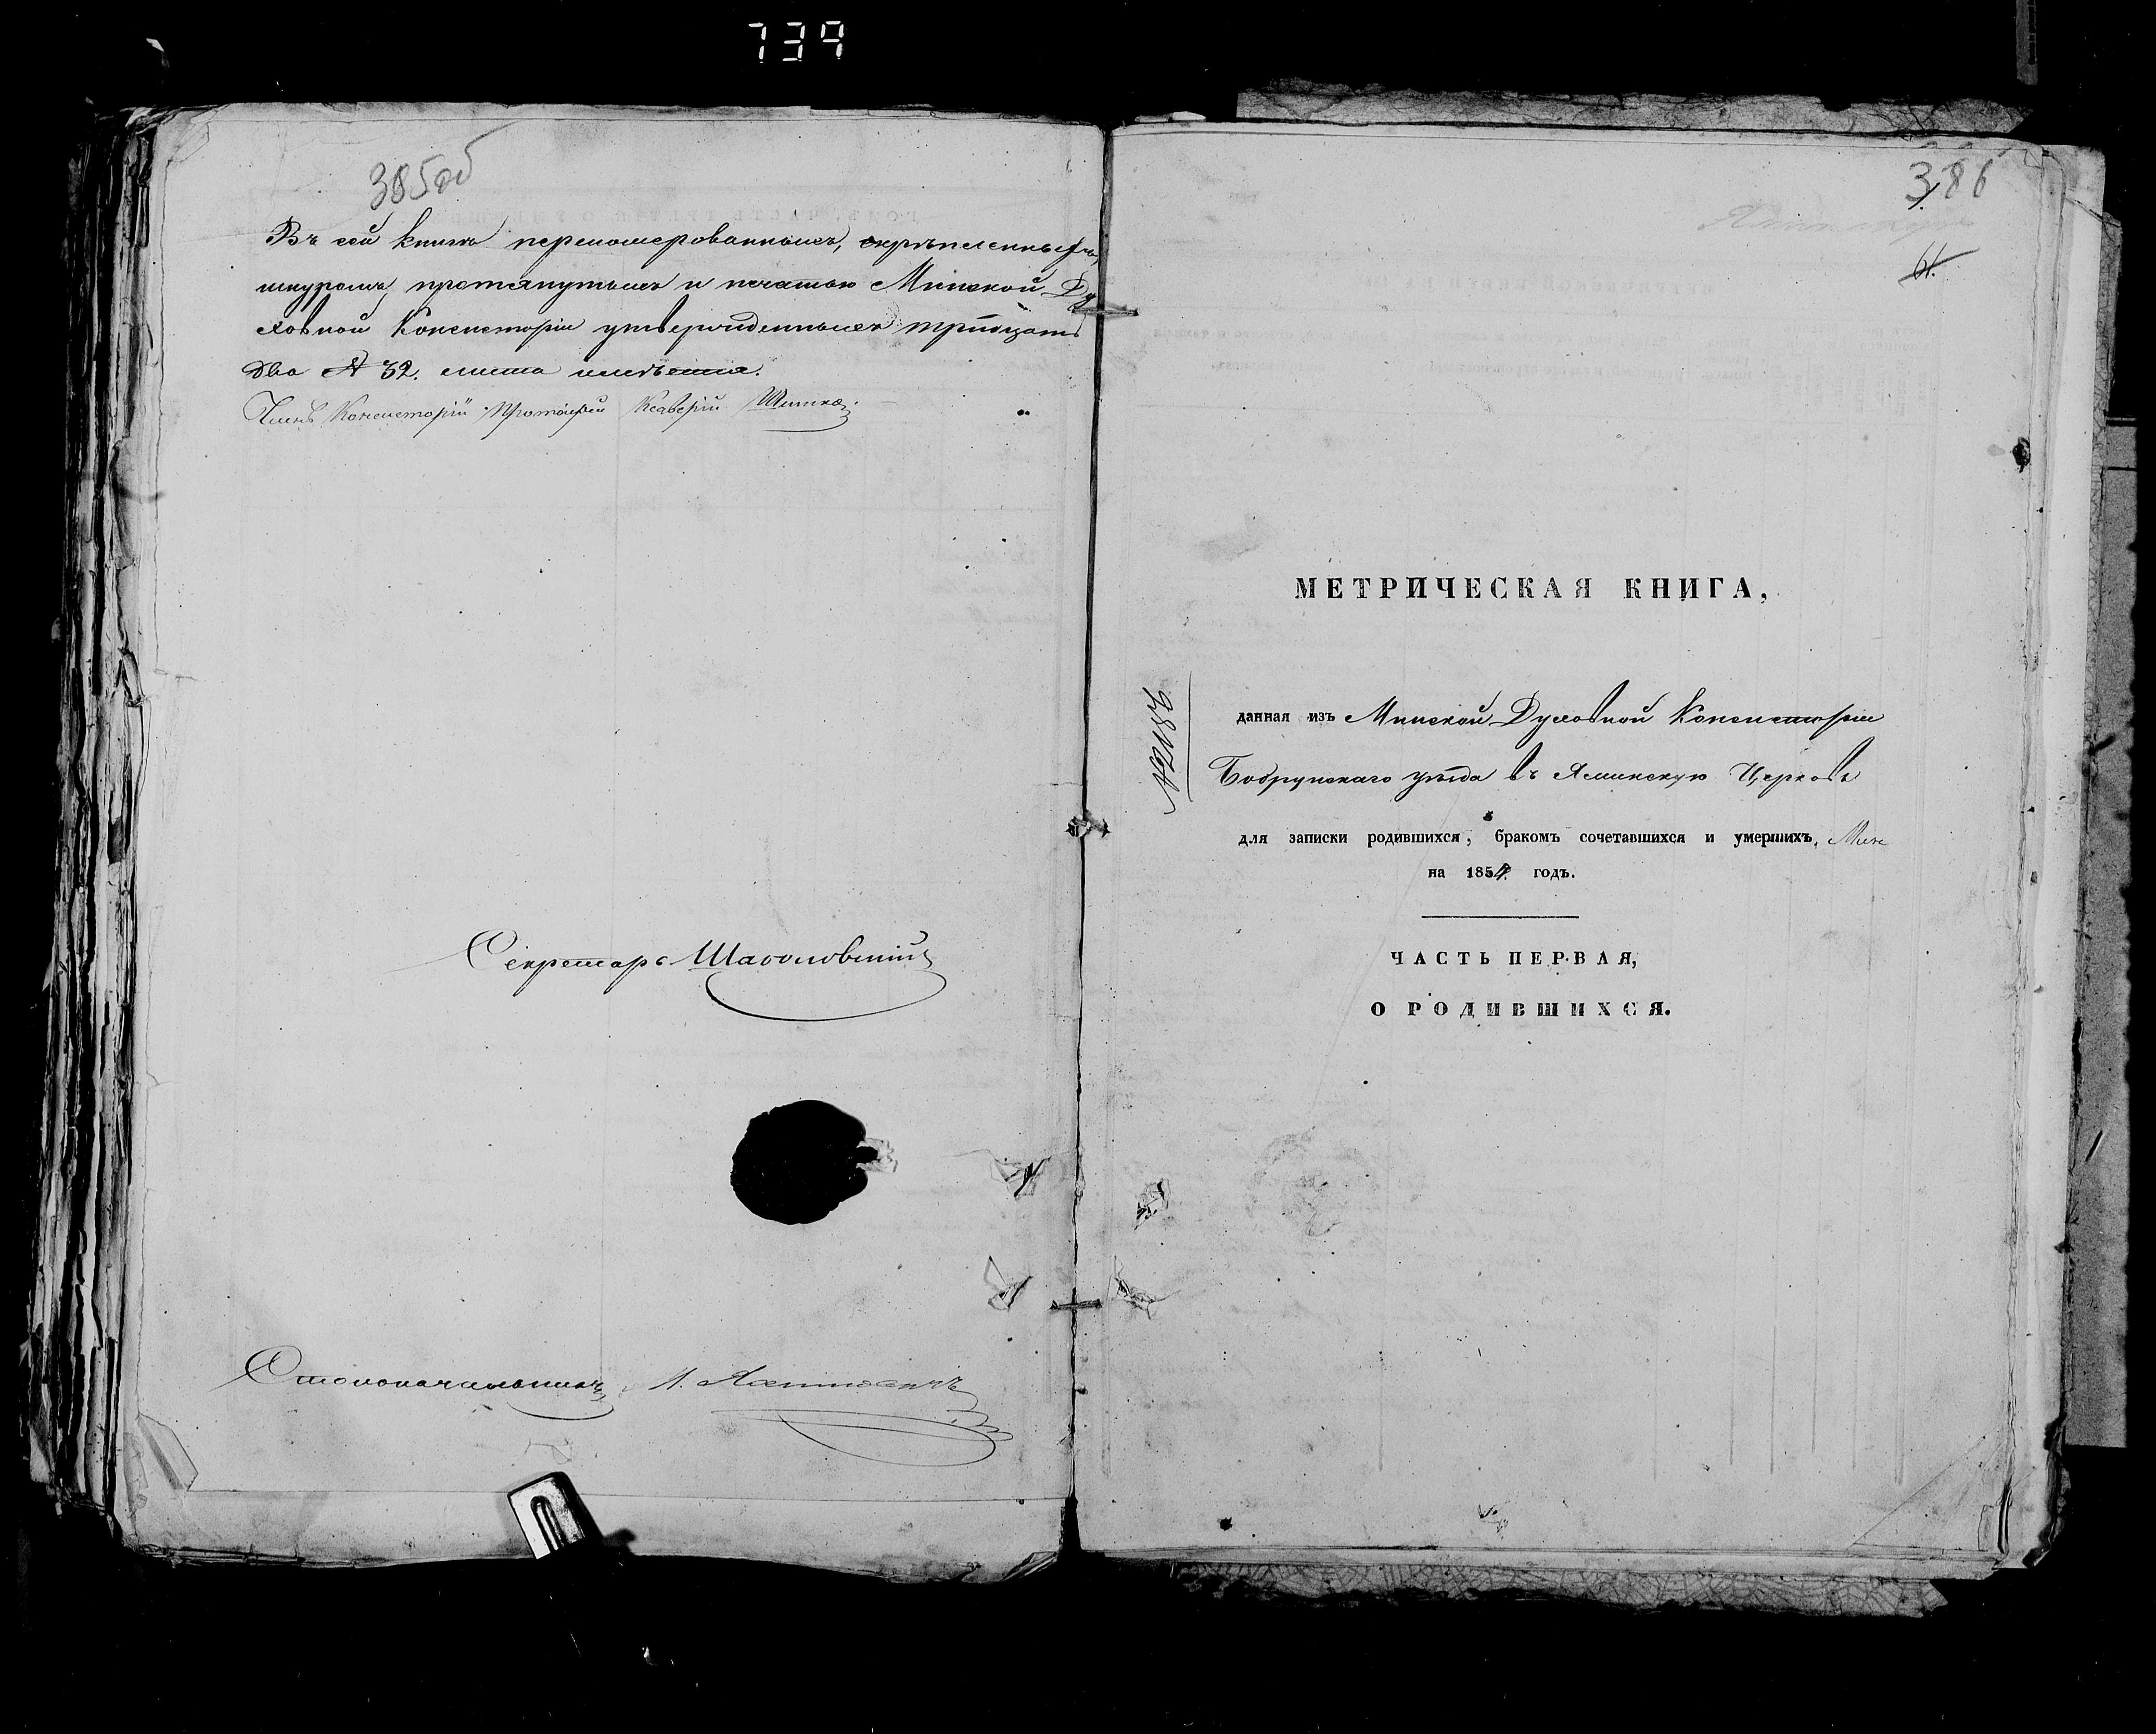 739
385об
Въ сей книгѣ переномерованныхъ, скрѣпленныхъ,
шнуромъ протянутыхъ и печатью Минской Ду
ховной Консисторіи утвержденныхъ тридцать
два № 32. листа имѣется.
Членъ Консисторіи Протоіерей Ксаверій
Секретарь
Столоначальникъ
386
61.
МЕТРИЧЕСКАЯ КНИГА,
№2186
данная изъ Минской Духовной Консисторіи
Бобруйскаго уѣзда въ Яминскую Церковь
для записки родившихся, бракомъ сочетавшихся и умершихъ,
на 1854. годъ.
ЧАСТЬ ПЕРВАЯ,
О РОДИВШИХСЯ.